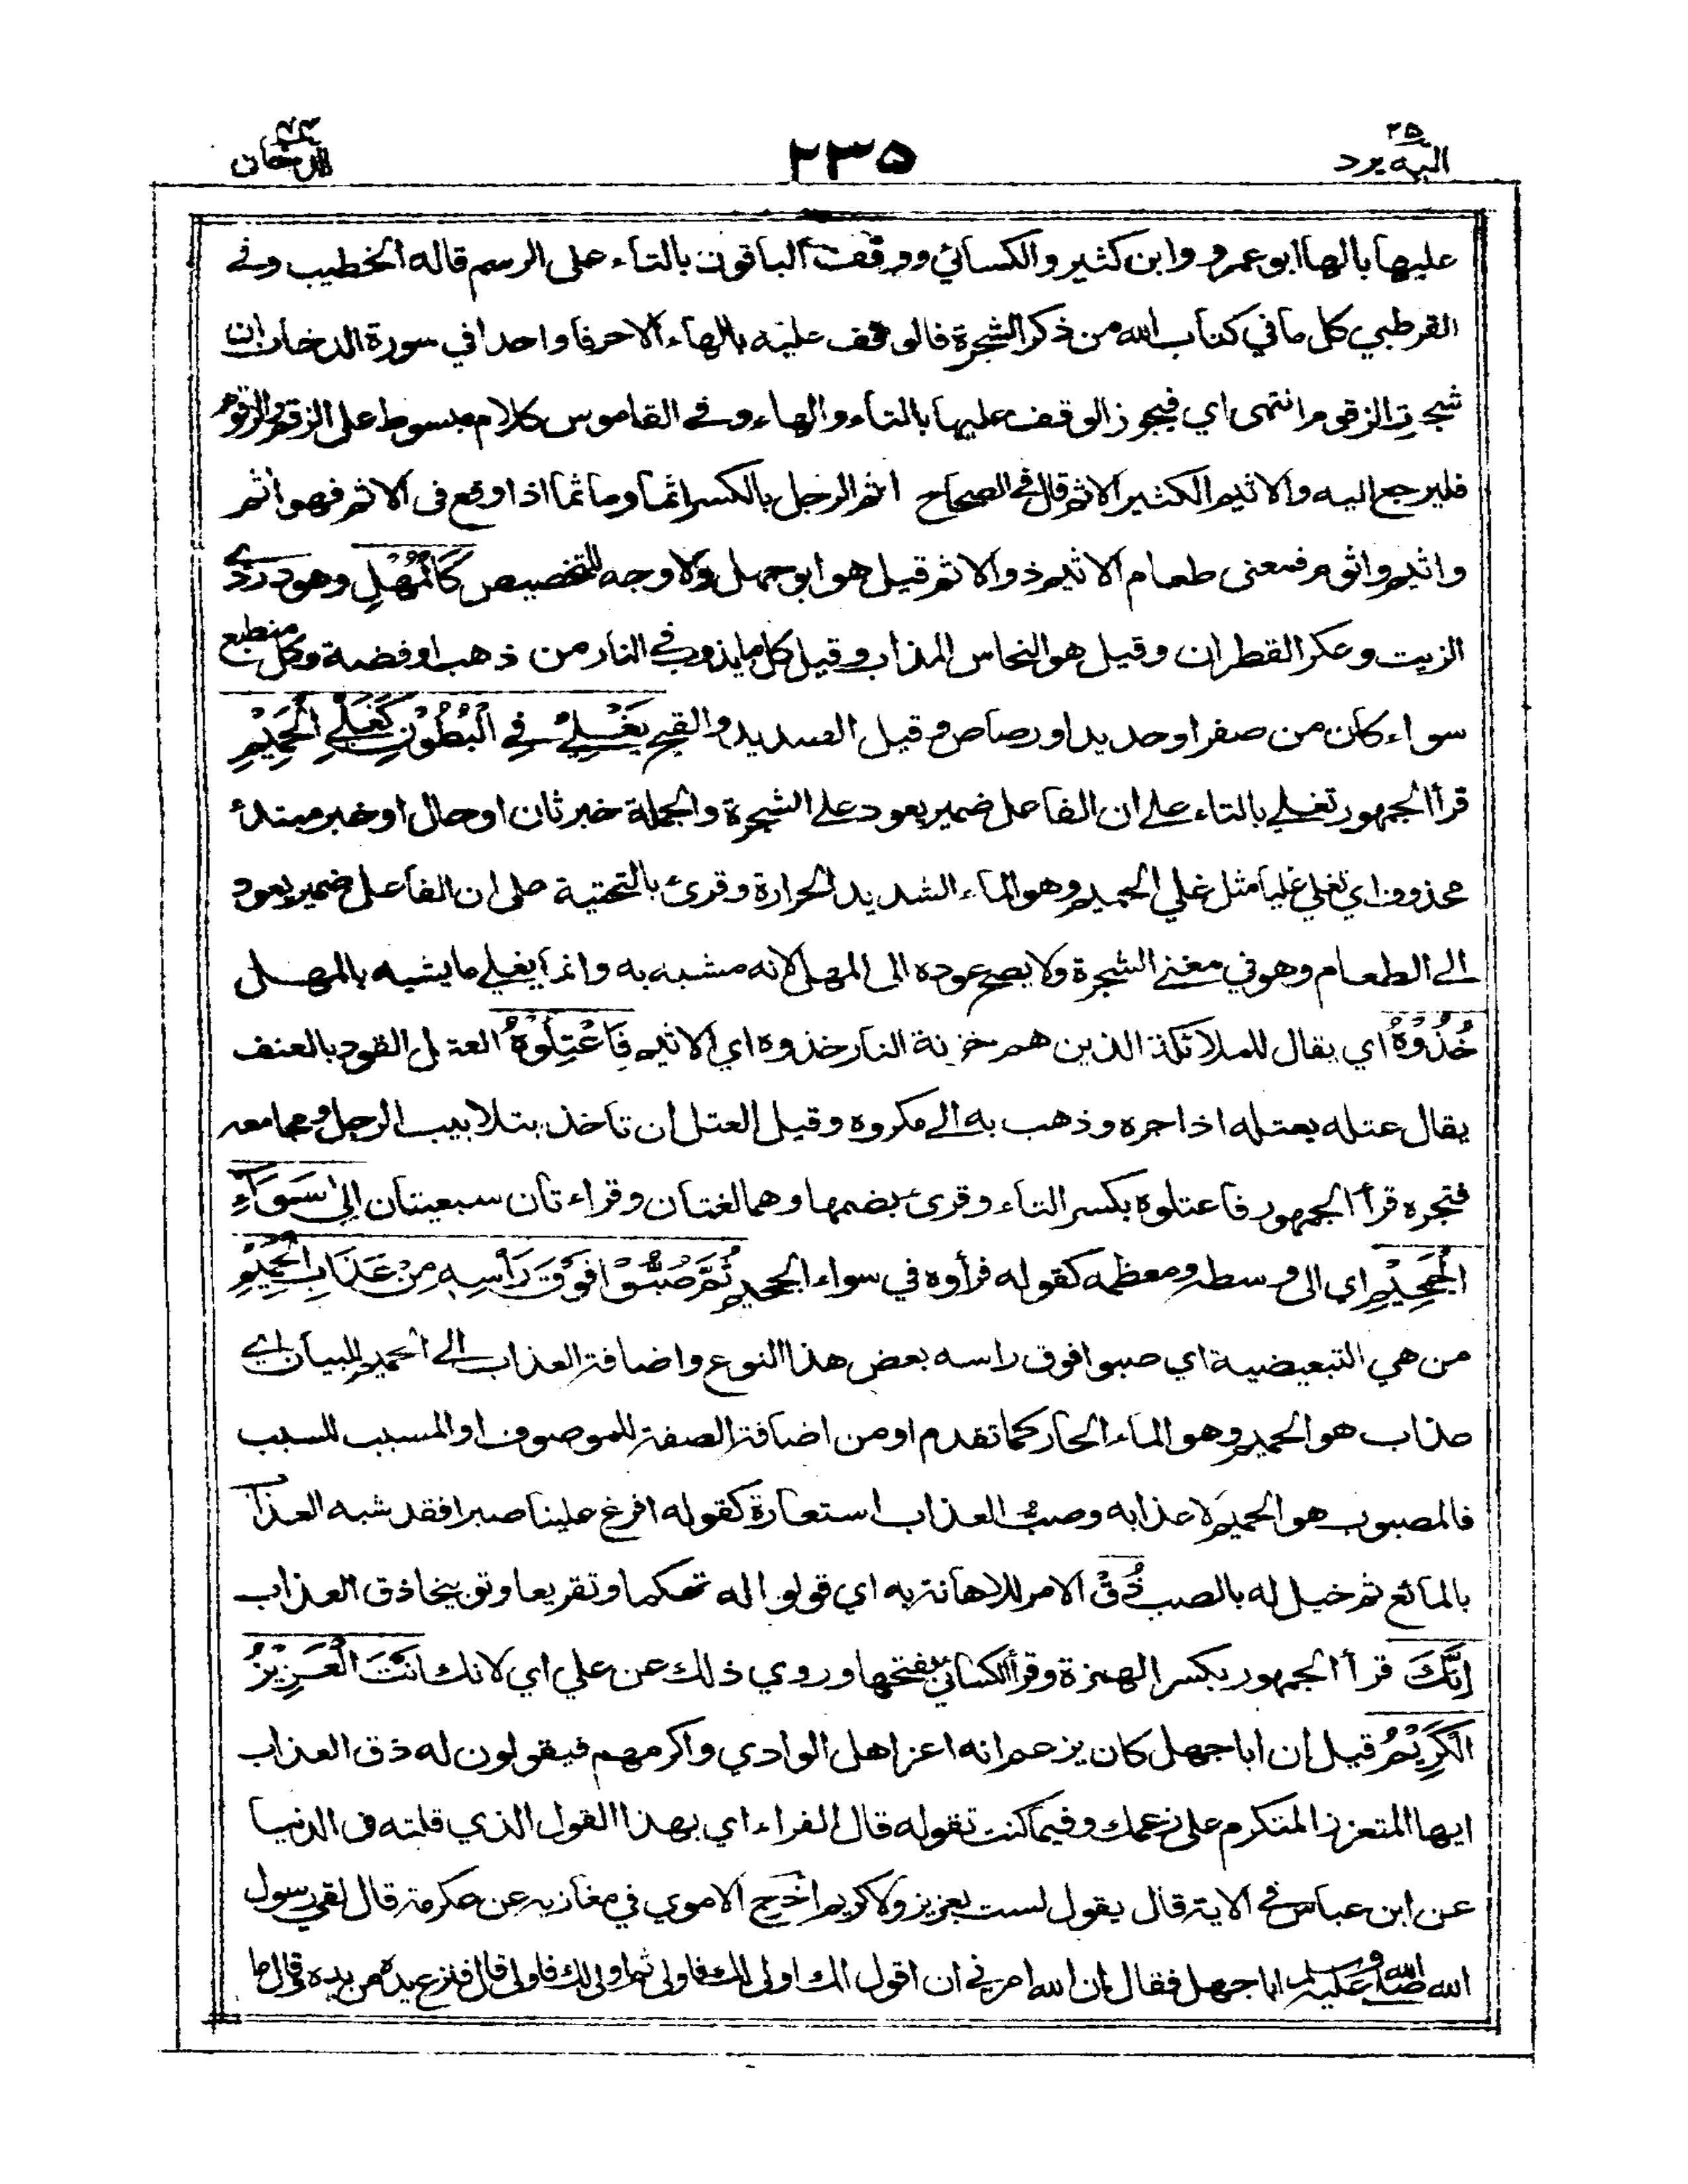 ٢٥
اليه يرد
٢٣٥
٤٤
الدخان
عليها بالها ابو عمرو وابن كثير والكسائي ووقف الباقون بالتاء على الرسم قاله الخطيب وفي
القرطبي كل ما في كتاب الله من ذكر الشجرة فالوقف عليه بالهاء الا حرفا واحدا في سورة الدخان ان
شجرت الزقوم انتهى اي فيجوز الوقف عليها بالتاء والهاء وفي القاموس كلام مبسوط على الزقم والزقوم
فليرجع اليه والاثيم الكثير الاثم قال في الصحاح اثم الرجل بالكسر اثما وماثما اذا وقع في الاثم فهو اثم
واثيم واثوم فمعنى طعام الاثيم ذو الاثم قيل هو ابو جهل ولا وجه للتخصيص كَالْمُهْلِ وهو دردي
الزيت وعكر القطران وقيل هو النحاس المذاب وقيل كل ما يذوب في النار من ذهب او فضة وكل منطبع
سواء كان من صفر او حديد او رصاص وقيل الصديد والقيح يَغْلِيْ فِي الْبُطُوْنِ كَغَلْيِ الْحَمِيْمِ
قرأ الجمهور تغلي بالتاء على ان الفاعل ضمير يعود على الشجرة والجملة خبر ثان او حال او خبر مبتدأ
محذوف اي تغلي غليا مثل غلي الحميم وهو الماء الشديد الحرارة وقرئ بالتحتية على ان الفاعل ضمير يعود
الى الطعام وهو في معنى الشجرة ولا يصح عوده الى المهل لانه مشبه به وانما يغلي ما يشبه بالمهل
خُذُوْهُ اي يقال للملائكة الذين هم خزنة النار خذوه اي الاثيم فَاعْتِلُوْهُ العتل القود بالعنف
يقال عتله يعتله اذا جره وذهب به الى مكروه وقيل العتل ان تاخذ بتلابيب الرجل ومجامعه
فتجره قرأ الجمهور فاعتلوه بكسر التاء وقرئ بضمها وهما لغتان وقراءتان سبعيتان اِلٰى سَوَآءِ
الْجَحِيْمِ اي الى وسطه ومعظمه كقوله فرأوه في سواء الجحيم ثُمَّ صُبُّوْا فَوْقَ رَأْسِهٖ مِنْ عَذَابِ الْحَمِيْمِ
من هي التبعيضية اي صبوا فوق راسه بعض هذا النوع واضافة العذاب الى الحميم للبيان اي
عذاب هو الحميم وهو الماء الحار كما تقدم او من اضافة الصفة للموصوف او المسبب للسبب
فالمصبوب هو الحميم لا عذابه وصب العذاب استعارة كقوله افرغ علينا صبرا فقد شبه العذاب
بالمائع ثم خيل له بالصب ذُقْ الامر للاهانة به اي قولوا له تهكما وتقريعا وتوبيخا ذق العذاب
اِنَّكَ قرأ الجمهور بكسر الهمزة وقرأ الكسائي بفتحها وروي ذلك عن علي اي لانك اَنْتَ الْعَزِيْزُ
الْكَرِيْمُ قيل ان ابا جهل كان يزعم انه اعز اهل الوادي واكرمهم فيقولون له ذق العذاب
ايها المتعزز المتكرم على زعمك وفيما كنت تقوله قال الفراء اي بهذا القول الذي قلته في الدنيا
عن ابن عباس في الاية قال يقول لست بعزيز ولا كريم اخرج الاموي في مغازيه عن عكرمة قال لقي رسول
الله صلى الله عليه وسلم ابا جهل فقال ان الله امرني ان اقول لك اولى لك فاولى ثم اولى لك فاولى قال فنزع يده من يده وقال ما